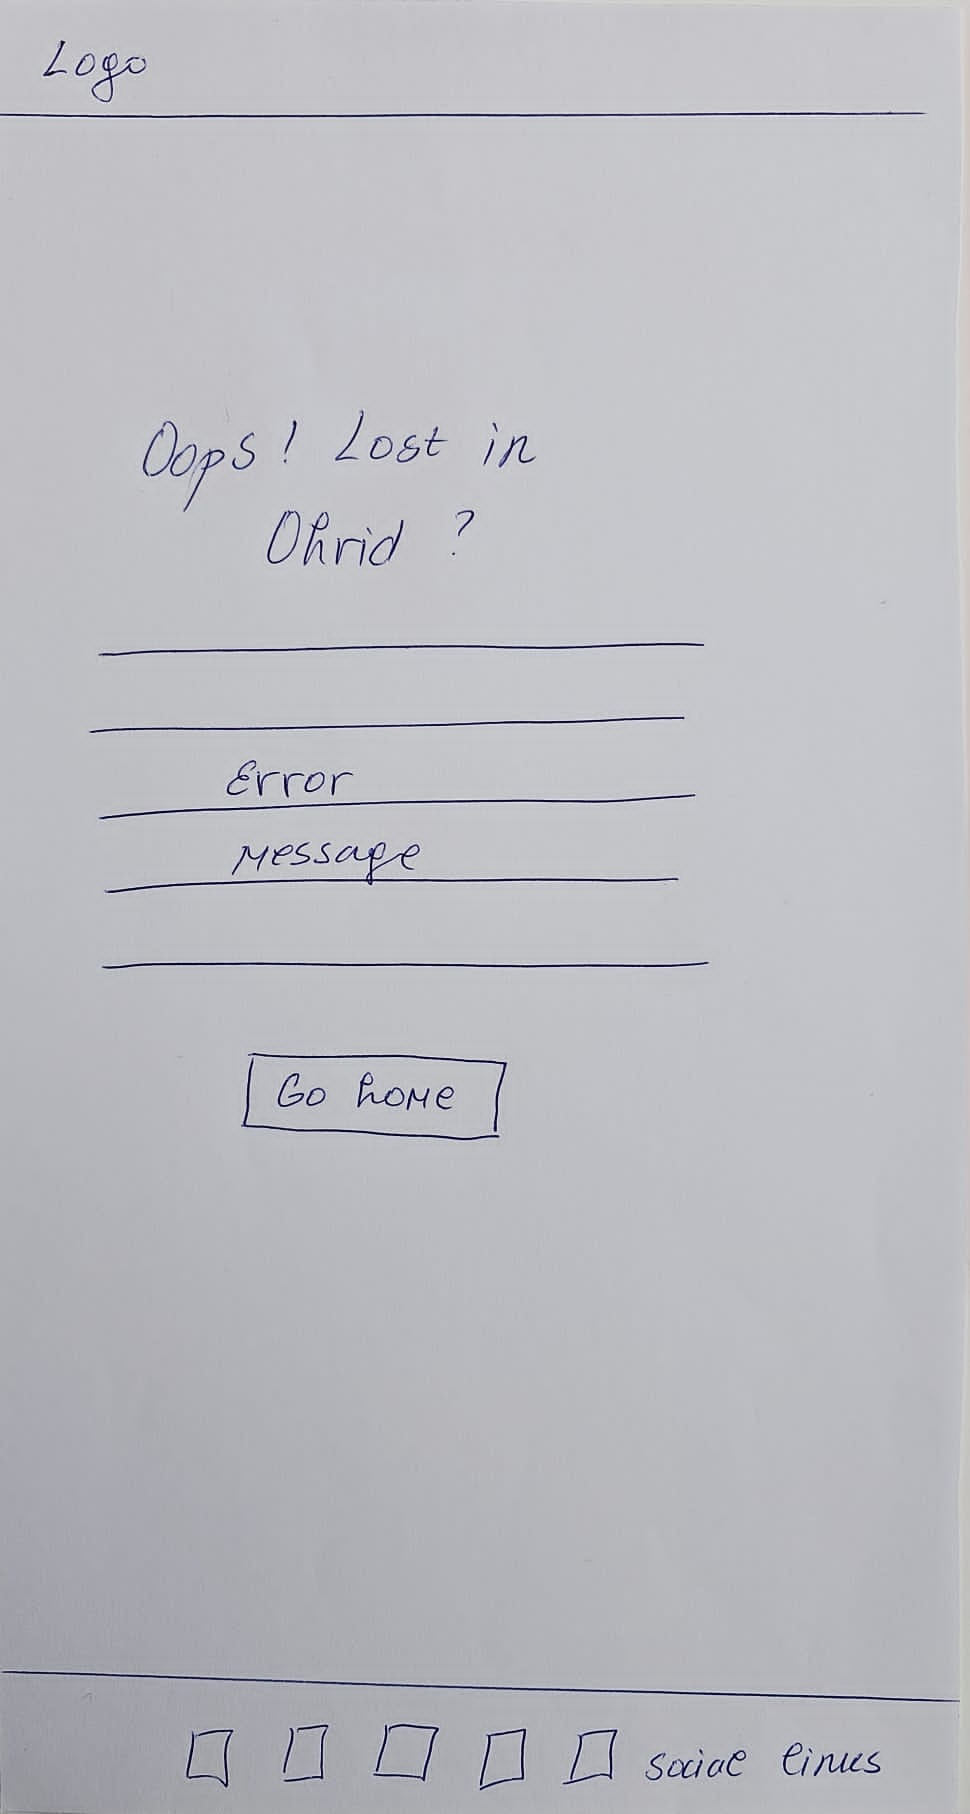 Logo
Oops! Lost in
Ohrid ?
Error
Message
Go home
social links